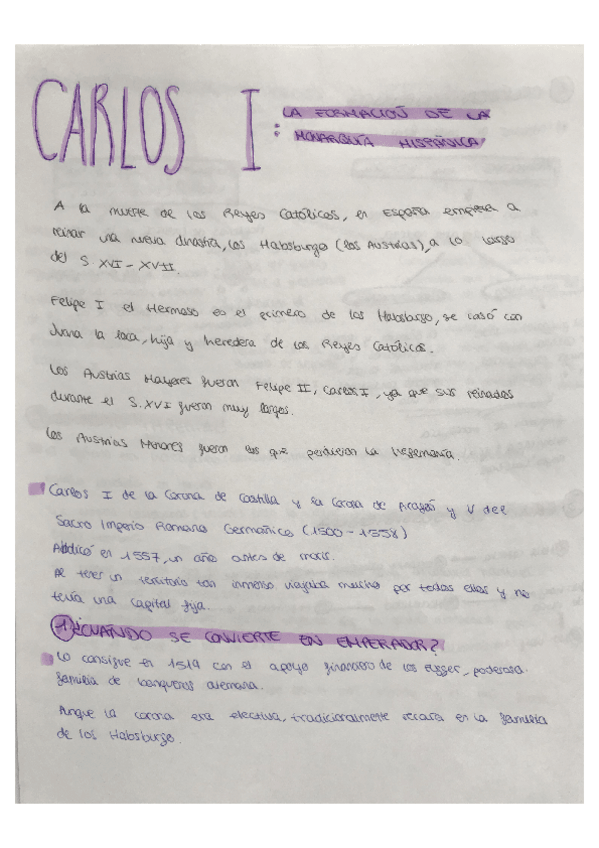 CARLOS I : LA FORMACIÓN DE LA
MONARQUÍA HISPÁNICA
A la muerte de los Reyes Católicos, en España empieza a
reinar una nueva dinastía, los Habsburgo (los Austrias), a lo largo
del S. XVI - XVII.
Felipe I el Hermoso es el primero de los Habsburgo, se casó con
Juana la loca, hija y heredera de los Reyes Católicos.
Los Austrias Mayores fueron Felipe II, Carlos I, ya que sus reinados
durante el S. XVI fueron muy largos.
Los Austrias Menores fueron los que perdieron la hegemonía.
Carlos I de la Corona de Castilla y la Corona de Aragón y V del
Sacro Imperio Romano Germánico (1500 - 1558)
Abdicó en 1557, un año antes de morir.
Al tener un territorio tan inmenso viajaba mucho por todos ellos y no
tenía una capital fija.
1 ¿CUÁNDO SE CONVIERTE EN EMPERADOR?
Lo consigue en 1519 con el apoyo financiero de los Fugger, poderosa
familia de banqueros alemana.
Aunque la corona era electiva, tradicionalmente recaía en la familia
de los Habsburgo.